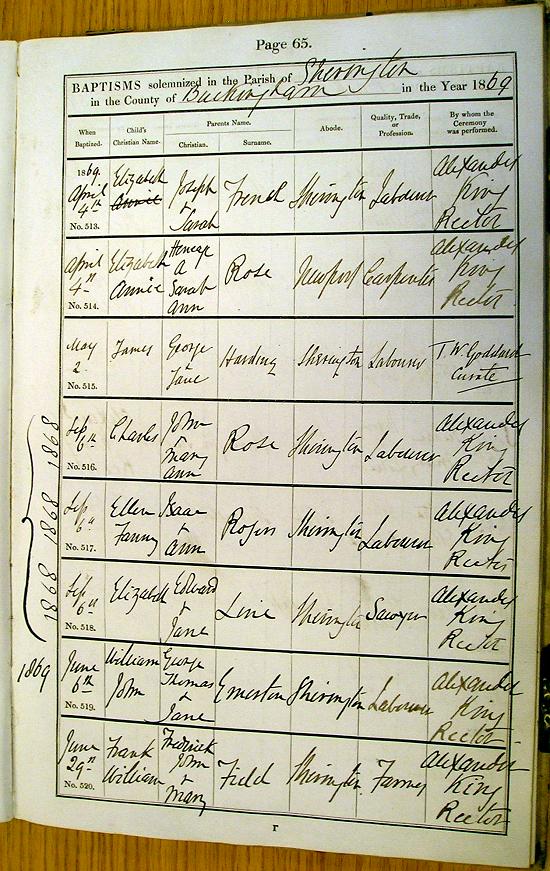 Page 65.
BAPTISMS solemnized in the Parish of Sherington
in the County of Buckingham in the Year 1869
When Baptized. Child's Christian Name. Parents Name. Abode. Quality, Trade, or Profession. By whom the Ceremony was performed.
Christian. Surname.
1869. April 4th No. 513. Elizabeth Annie Joseph & Sarah French Sherington Labourer Alexander King Rector
April 4th No. 514. Elizabeth Annie A Sarah Ann Rose Newport Carpenter Alexander King Rector
May 2. No. 515. James George & Jane Harding Sherington Labourer T. W. Goddard Curate
1868 Sep 6th No. 516. Charles John & Mary Ann Rose Sherington Labourer Alexander King Rector
1868 Sep 6th No. 517. Ellen Fanny Isaac & Ann Rogers Sherington Labourer Alexander King Rector
1868 Sep 6th No. 518. Elizabeth Edward & Jane Line Sherington Sawyer Alexander King Rector
1869 June 6th No. 519. William John George Thomas & Jane Emerton Sherington Labourer Alexander King Rector
June 29th No. 520. Frank William Frederick John & Mary Field Sherington Farmer Alexander King Rector